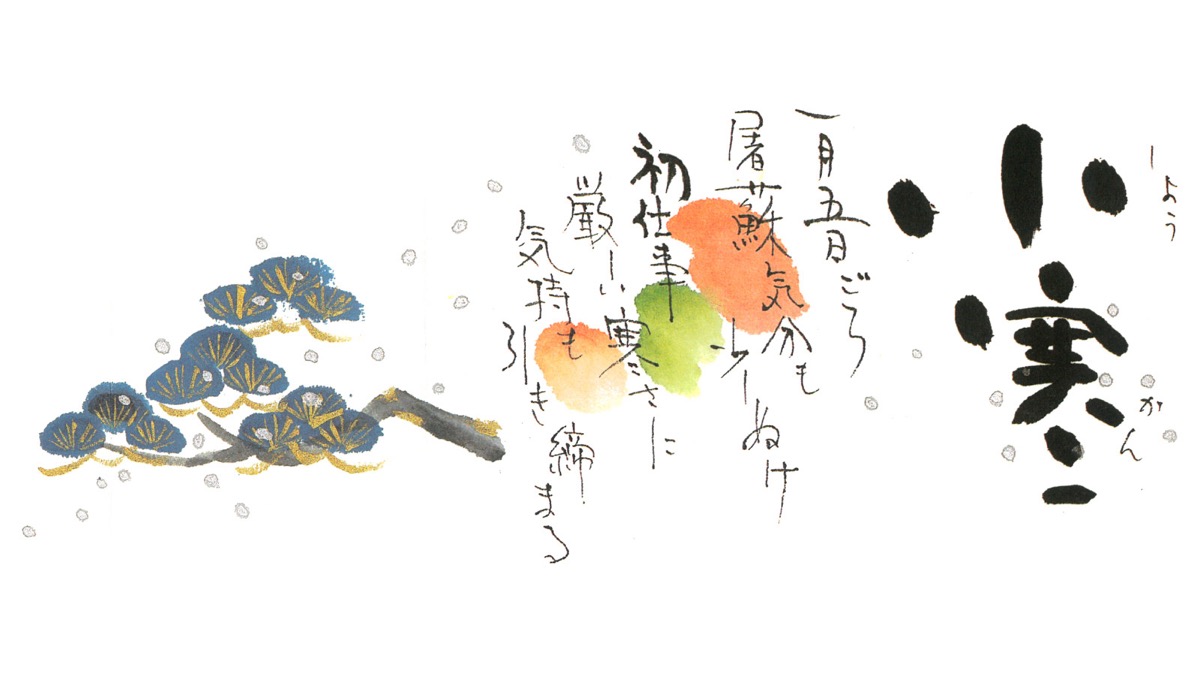 小寒
しょうかん
一月五日ごろ
屠蘇気分も
少しぬけ
初仕事
厳しい寒さに
気持も
引き締まる